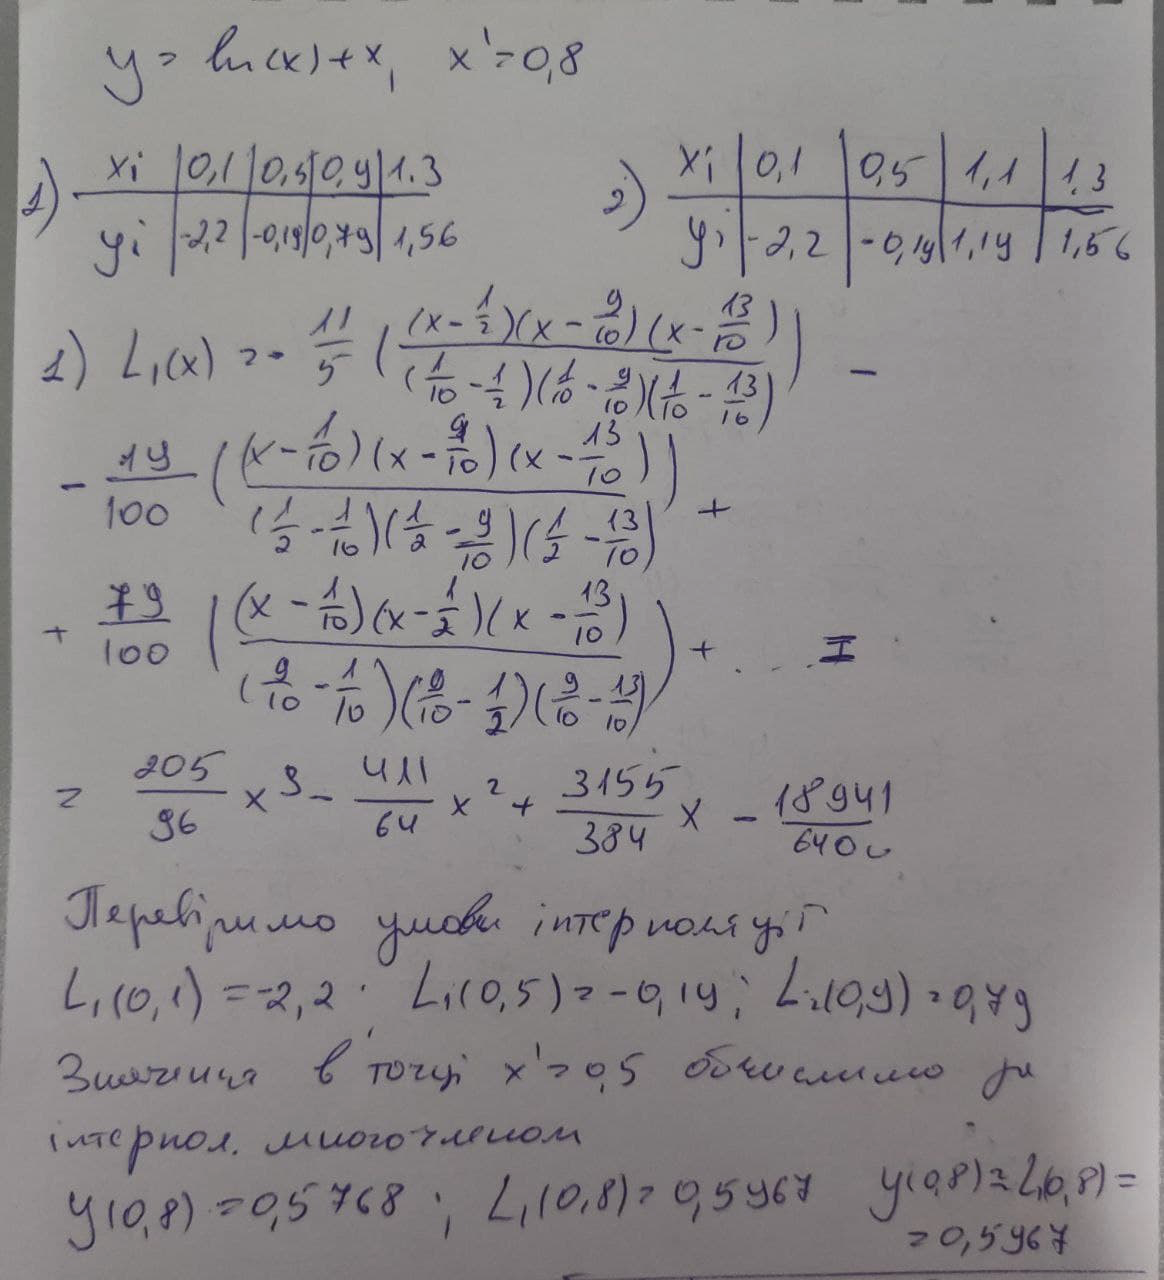 y = ln(x) + x, x' = 0,8
1) xi | 0,1 | 0,5 | 0,9 | 1.3
yi | -2,2 | -0,19 | 0,79 | 1,56
2) xi | 0,1 | 0,5 | 1,1 | 1.3
yi | -2,2 | -0,19 | 1,19 | 1,56
1) L₁(x) = - 11/5 ( (x - 1/2)(x - 9/10)(x - 13/10) / (1/10 - 1/2)(1/10 - 9/10)(1/10 - 13/10) ) -
- 19/100 ( (x - 1/10)(x - 9/10)(x - 13/10) / (1/2 - 1/10)(1/2 - 9/10)(1/2 - 13/10) ) +
+ 79/100 ( (x - 1/10)(x - 1/2)(x - 13/10) / (9/10 - 1/10)(9/10 - 1/2)(9/10 - 13/10) ) + ... =
= 205/96 x³ - 411/64 x² + 3155/384 x - 18941/6400
Перевіримо умови інтерполяції
L₁(0,1) = -2,2; L₁(0,5) = -0,19; L₁(0,9) = 0,79
Значення в точці x' = 0,5 обчислимо за
інтерпол. многочленом
y(0,8) = 0,5768; L₁(0,8) = 0,5967 y(0,8) ≈ L₁(0,8) =
= 0,5967